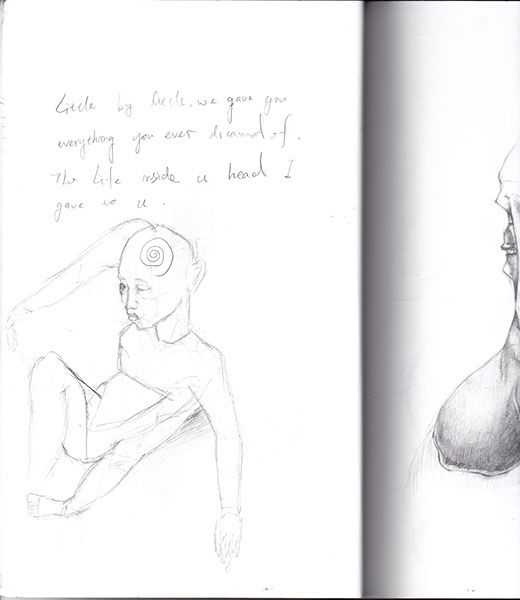 Little by little, we gave you
everything you ever dreamed of.
The life inside u head I
gave to u.